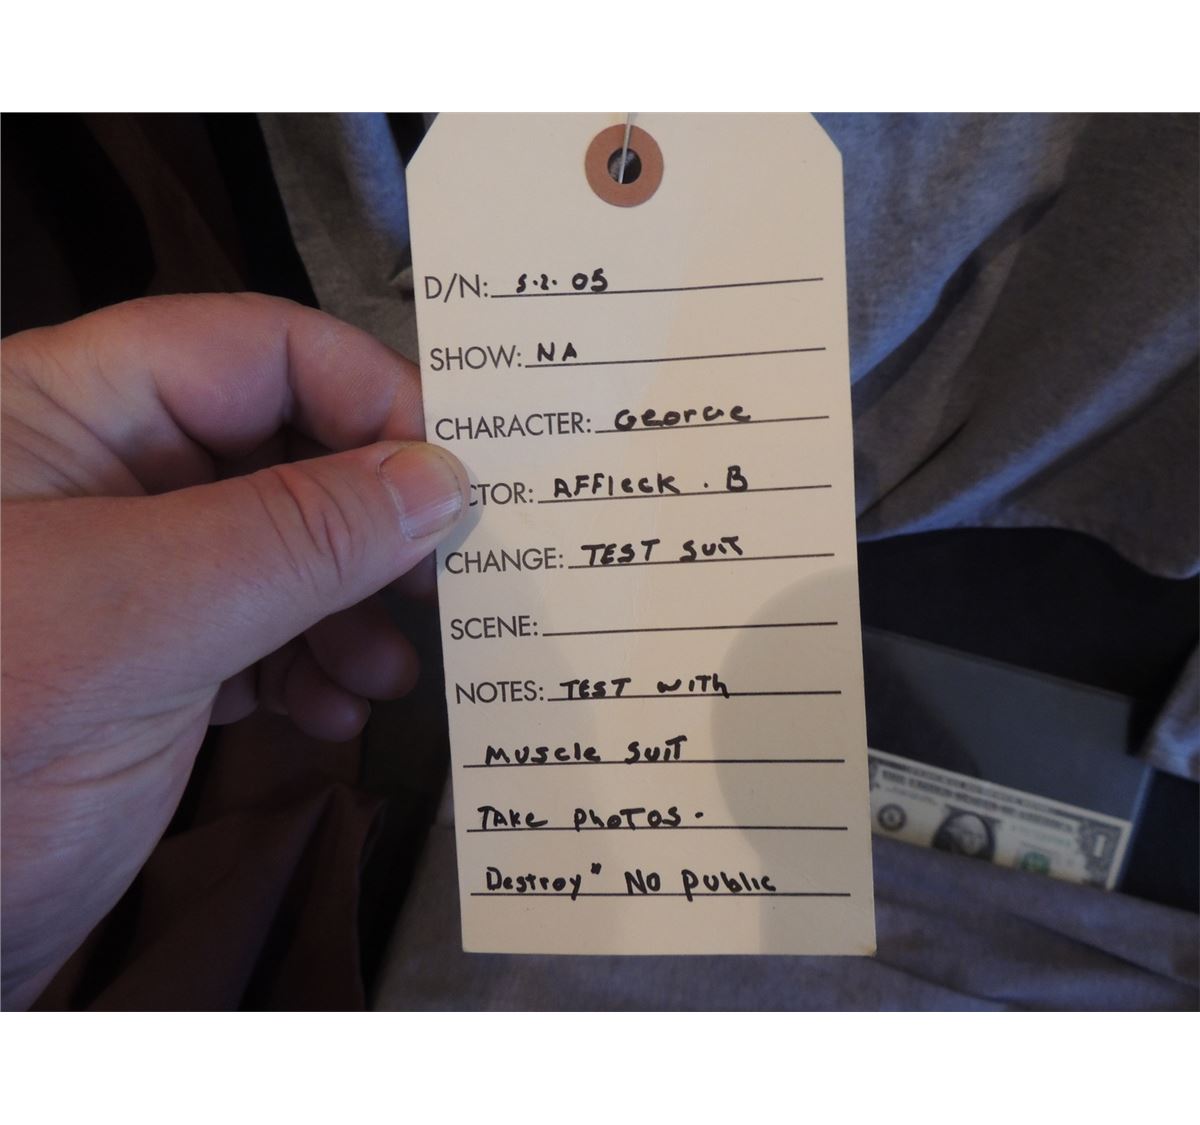 D/N: 5.2.05
SHOW: NA
CHARACTER: George
CTOR: AFFleck . B
CHANGE: TEST SUIT
SCENE:
NOTES: TEST WITh
Muscle SUIT
TAKe PhoTos.
Destroy" NO Public
1